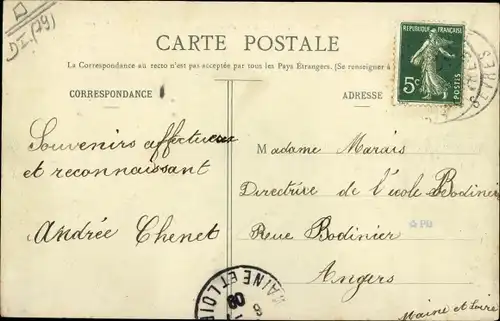 D I. (79)
CARTE POSTALE
La Correspondance au recto n'est pas acceptée par tous les Pays Étrangers. (Se renseigner à
CORRESPONDANCE
ADRESSE
REPUBLIQUE FRANÇAISE
5c
POSTES
Souvenirs affectueux
et reconnaissant
Andrée Chenet
Madame Marais
Directrice de l'école Bodinier
Rue Bodinier
Angers
Maine et Loire
MAINE ET LOIRE
08